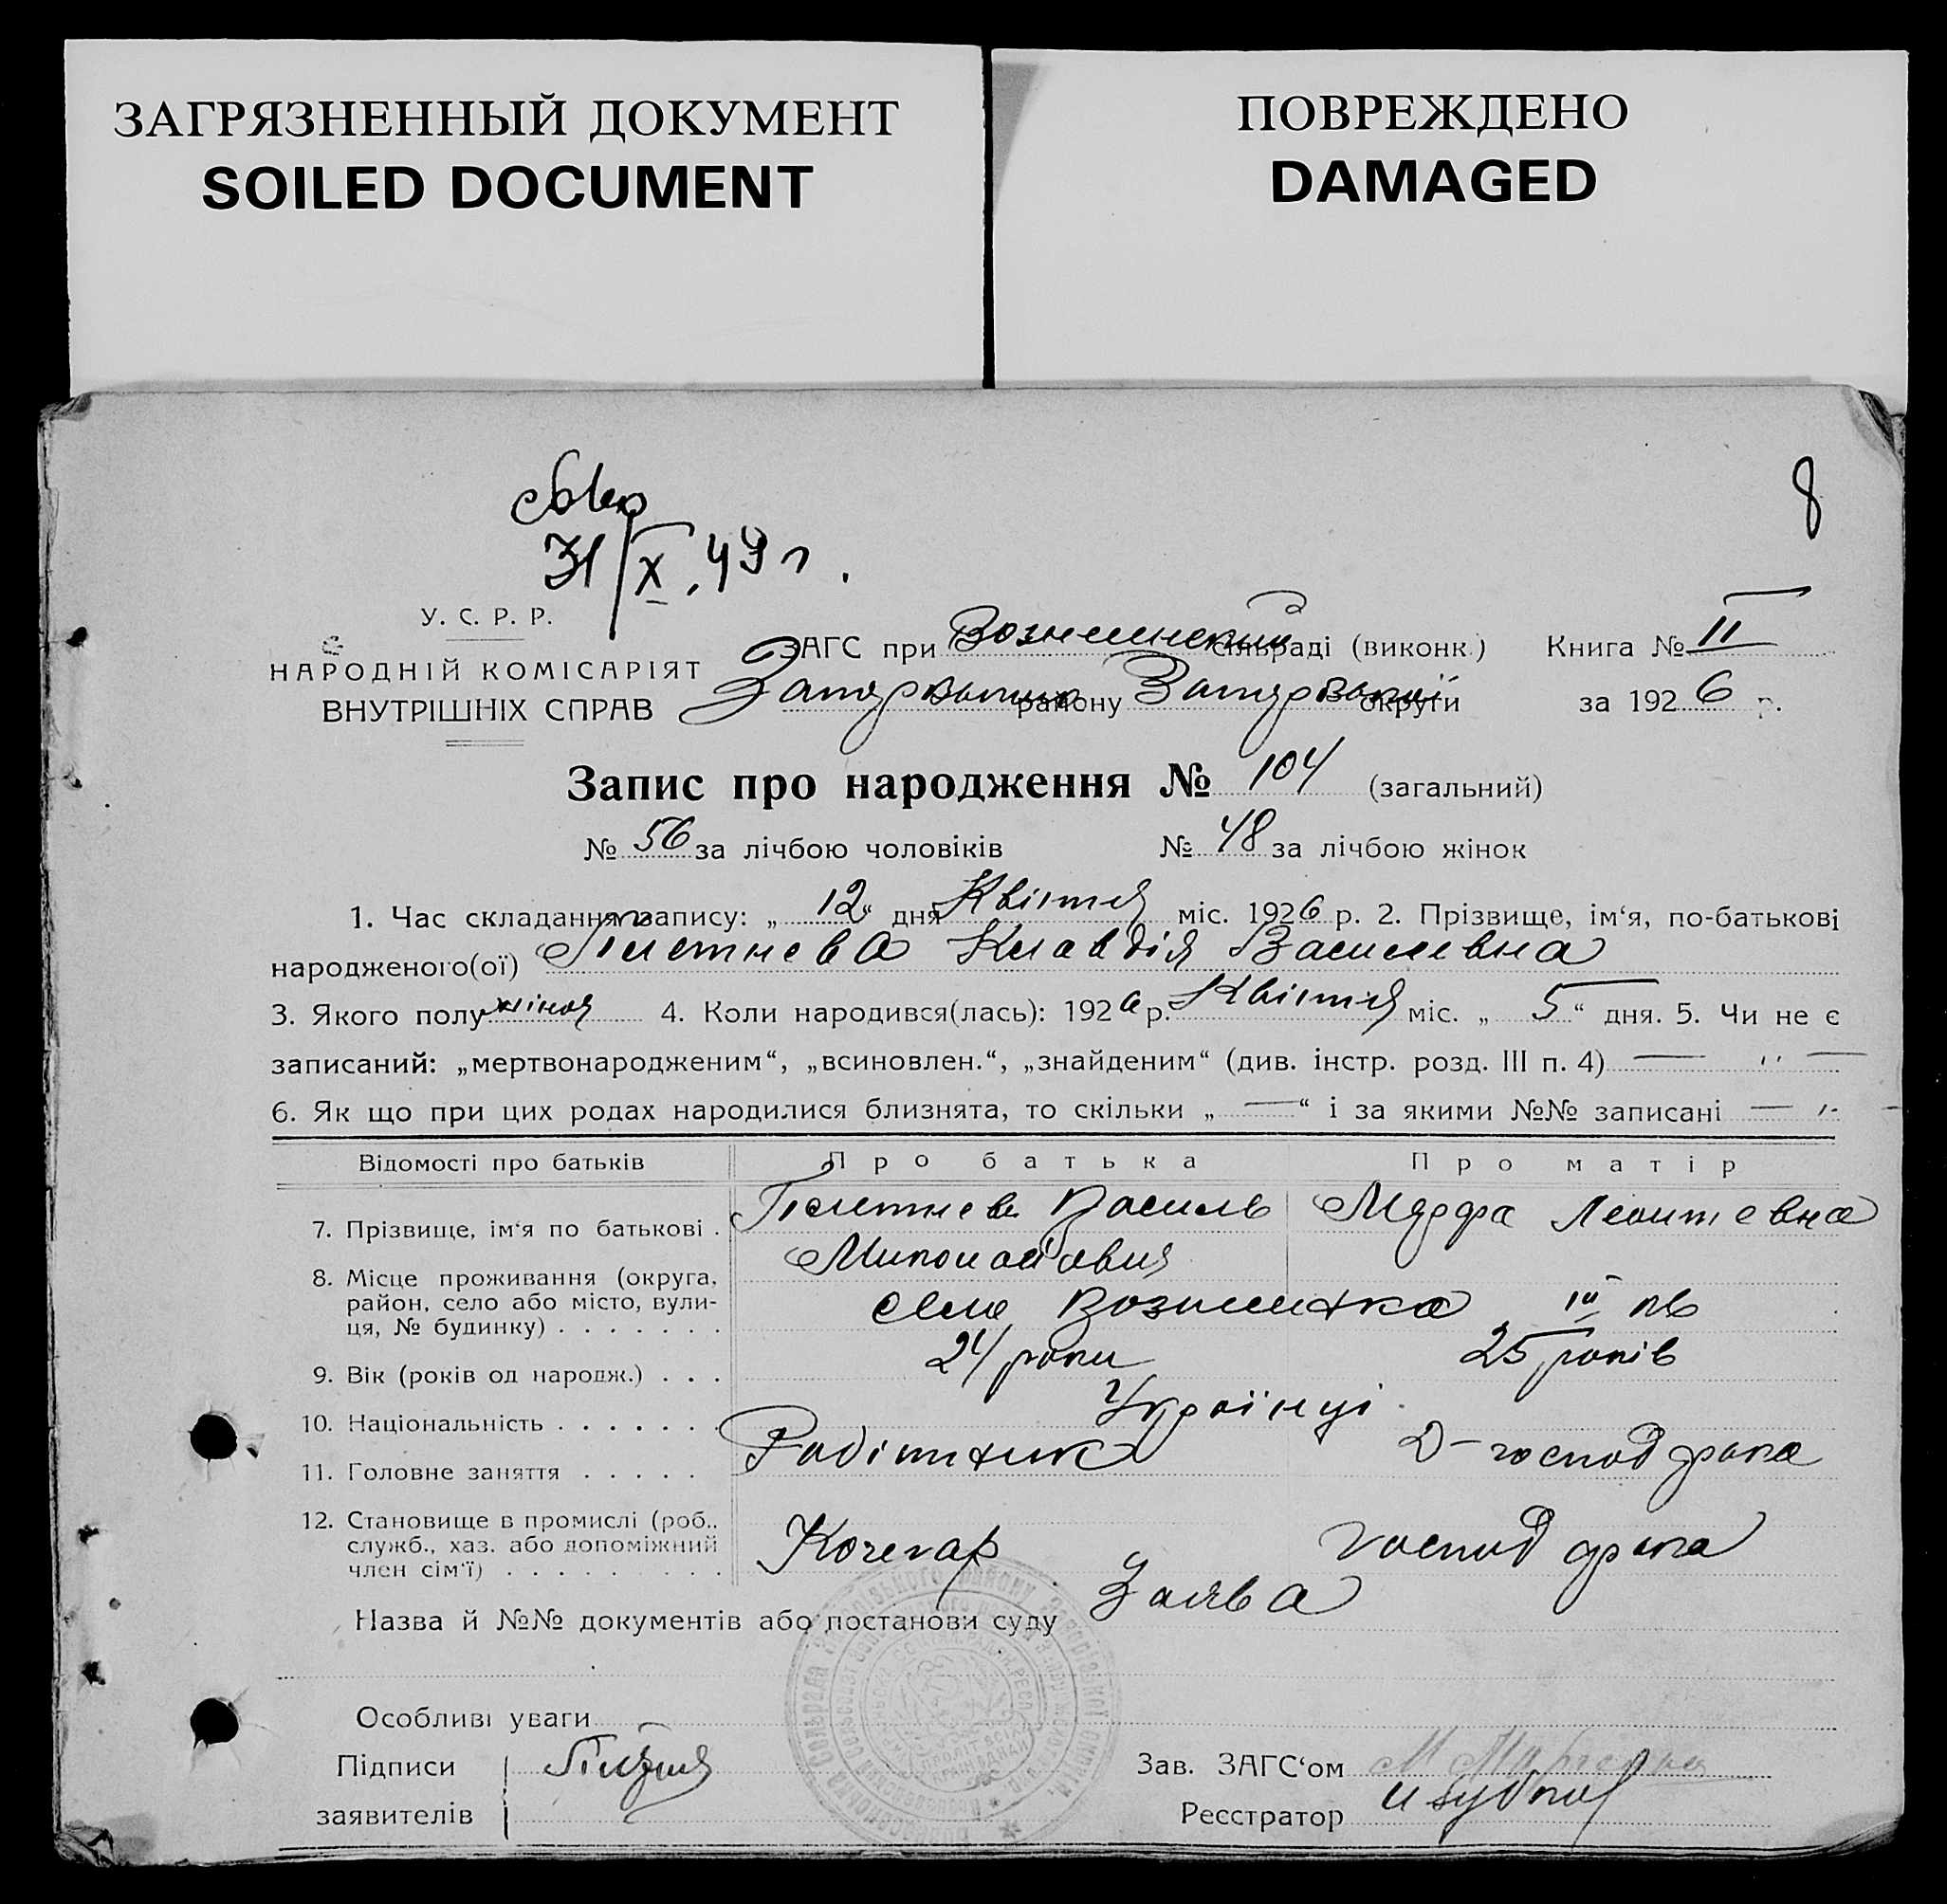 ЗАГРЯЗНЕННЫЙ ДОКУМЕНТ
SOILED DOCUMENT
ПОВРЕЖДЕНО
DAMAGED
8
31/X.49 г.
У. С. Р. Р.
НАРОДНІЙ КОМІСАРІЯТ
ВНУТРІШНІХ СПРАВ
ЗАГС при сільраді (виконк.) Книга № II
району округи за 1926 р.
Запис про народження № 104 (загальний)
№ 56 за лічбою чоловіків № 48 за лічбою жінок
1. Час складання запису: „ 12 “ дня Квітня міс. 1926 р. 2. Прізвище, ім‘я, по-батькові
народженого(ої) Плетнева Клавдія Василевна
3. Якого полу жіноч 4. Коли народився(лась): 1926 р. Квітня міс. „ 5 “ дня. 5. Чи не є
записаний: „мертвонародженим“, „всиновлен.“, „знайденим“ (див. інстр. розд. III п. 4) — „ —
6. Як що при цих родах народилися близнята, то скільки „ — “ і за якими №№ записані — „ —
Відомості про батьків Про батька Про матір
7. Прізвище, ім‘я по батькові . Плетнев Василь Марфа Леонтевна
Миколаєвич
8. Місце проживання (округа,
район, село або місто, вули-
ця, № будинку) . . . . . . . село Вознесенка III
9. Вік (років од народж.) . . . 24 роки 25 років
10. Національність . . . . . . . Українці
11. Головне заняття . . . . . Робітник Д-господарка
12. Становище в промислі (роб.,
служб., хаз. або допоміжний
член сім‘ї) . . . . . . . . . Кочегар господарка
Назва й №№ документів або постанови суду Заява
Особливі уваги
Підписи
заявителів
Зав. ЗАГС‘ом
Реєстратор